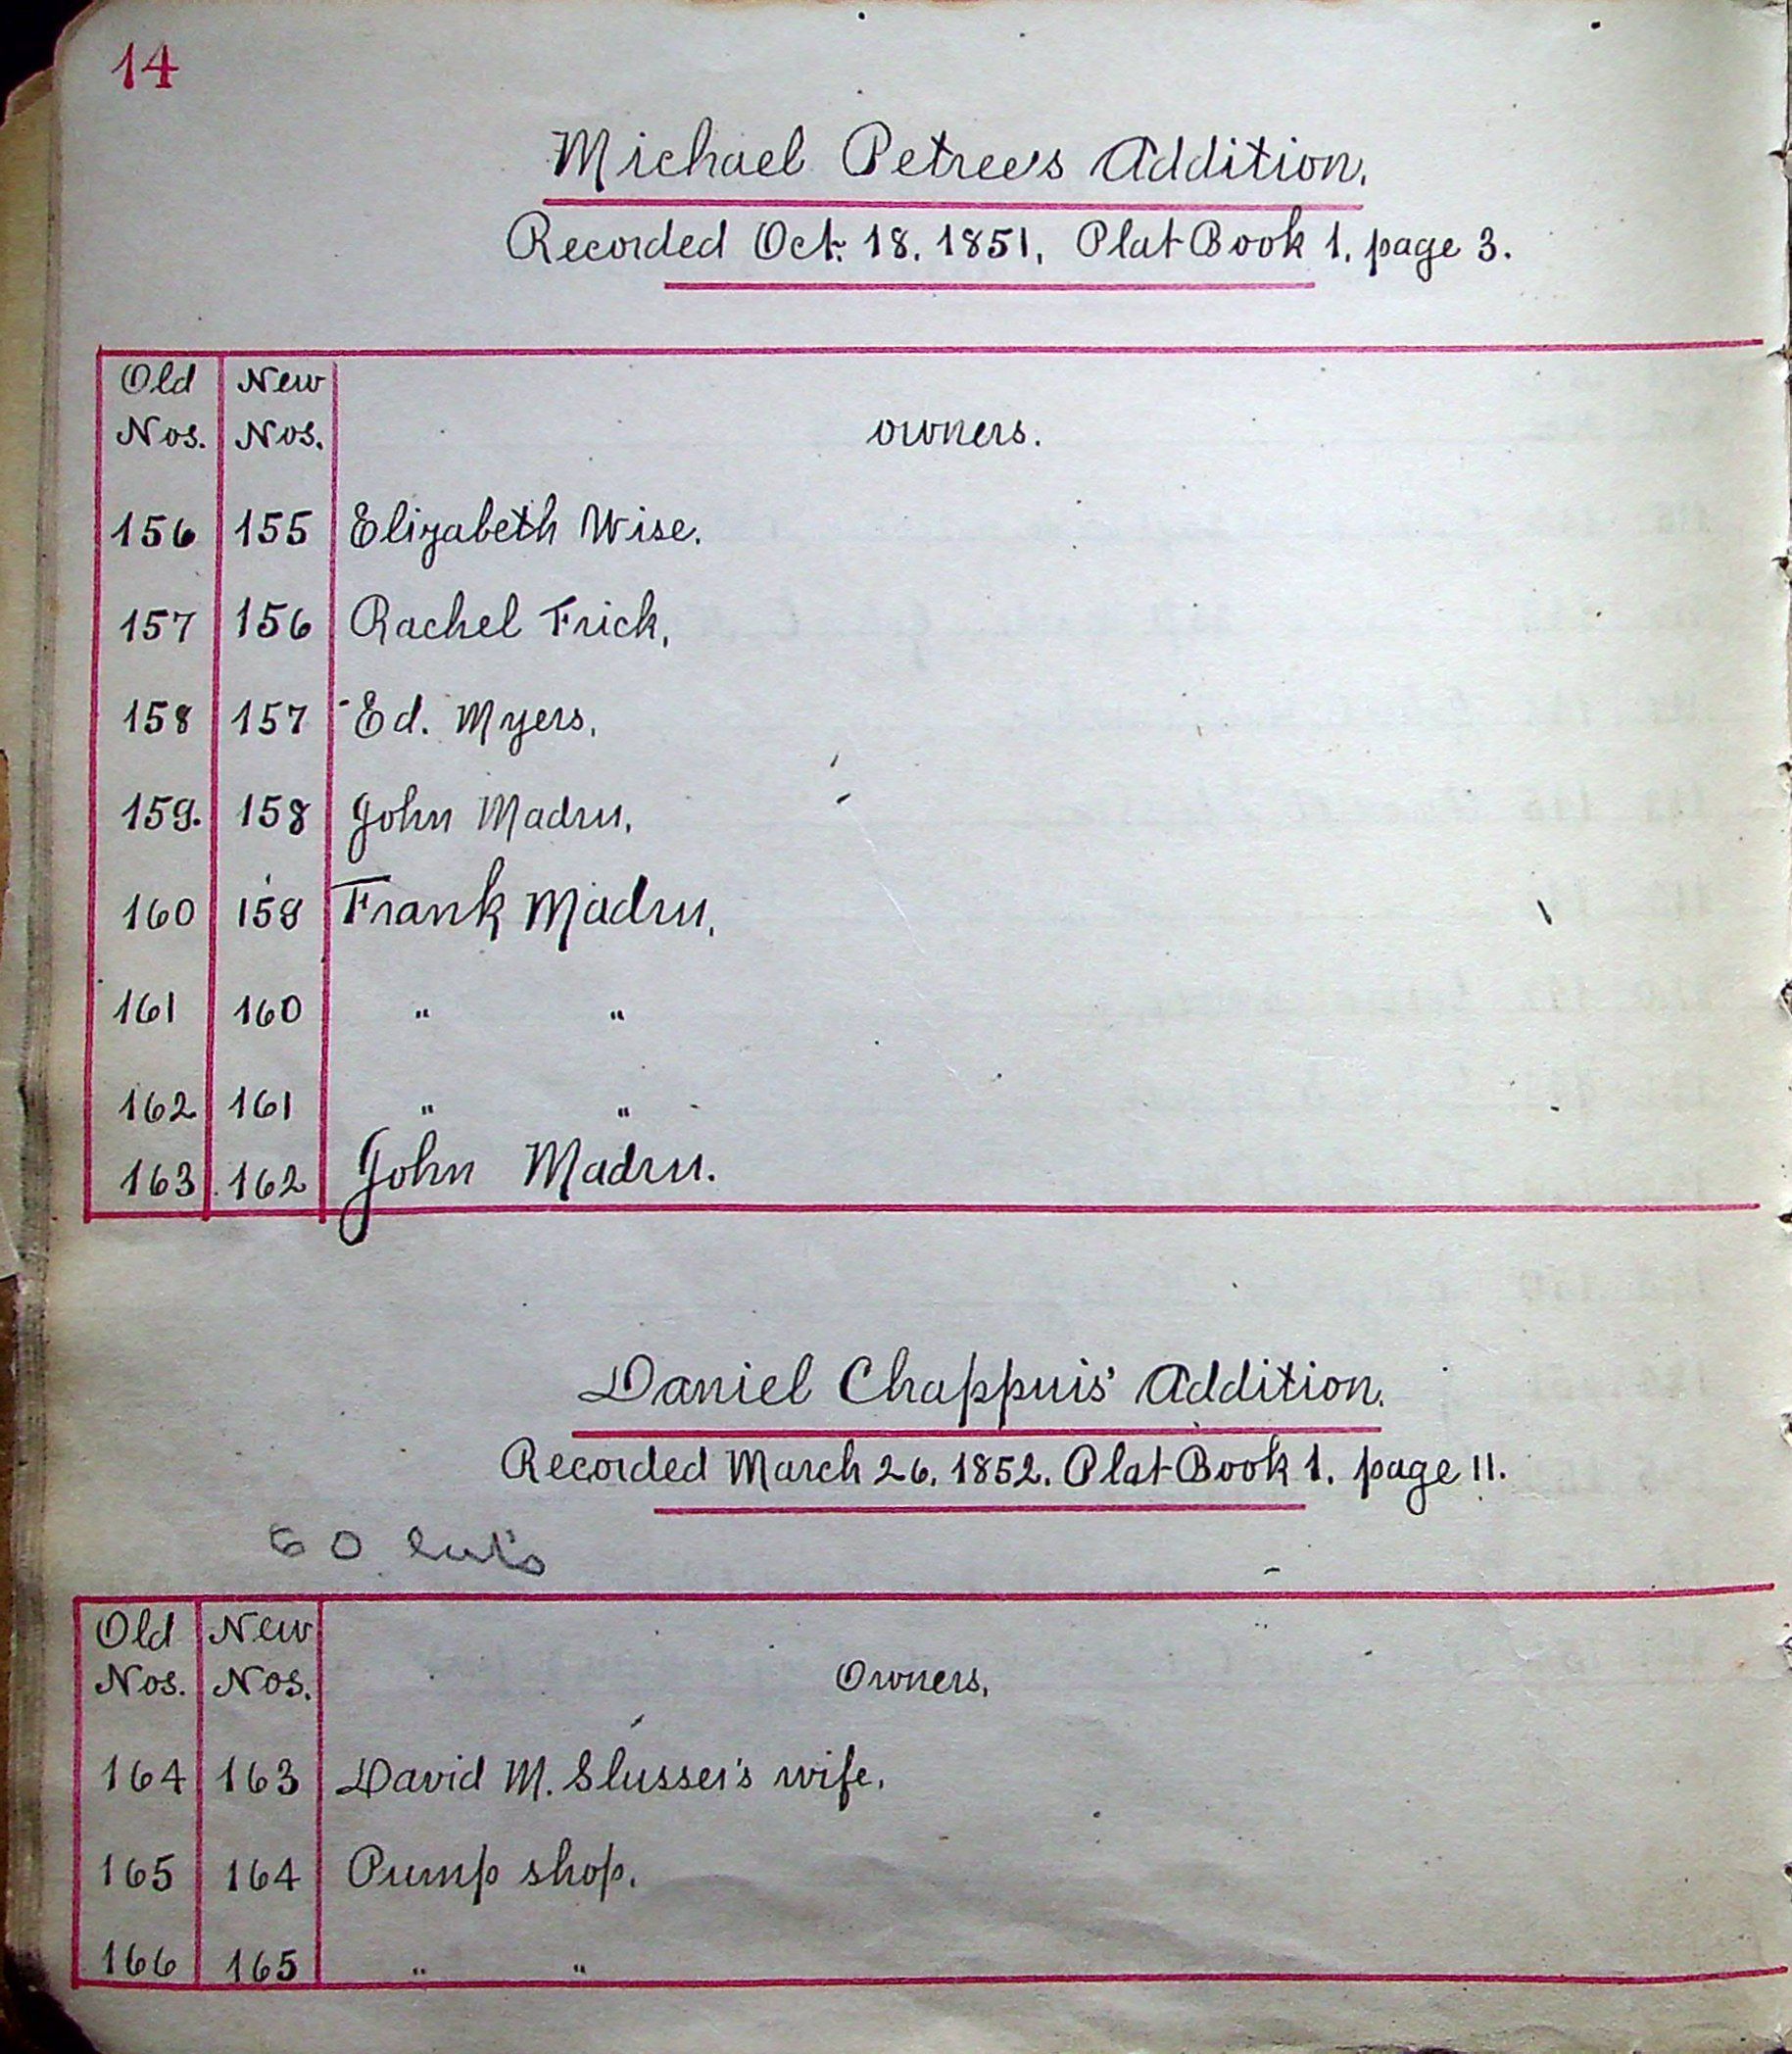 14
Michael Petree's Addition.
Recorded Oct. 18. 1851. Plat Book 1. page 3.
Old New
Nos. Nos. owners.
156 155 Elizabeth Wise.
157 156 Rachel Frick,
158 157 Ed. Myers,
159. 158 John Madru,
160 159 Frank Madru,
161 160 " "
162 161 " "
163 162 John Madru.
Daniel Chappuis' Addition.
Recorded March 26. 1852. Plat Book 1. page 11.
60
Old New
Nos. Nos. Owners,
164 163 David M. Slusser's wife.
165 164 Pump shop.
166 165 " "